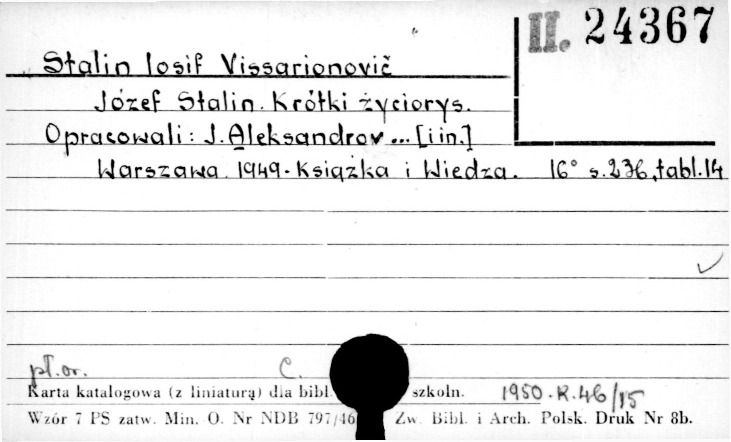 II. 24367
Stalin Iosif Vissarionovič
Józef Stalin. Krótki życiorys.
Opracowali: J. Aleksandrov ... [i in.]
Warszawa 1949. Książka i Wiedza. 16° s. 236, tabl. 14
pł. or. C.
Karta katalogowa (z liniaturą) dla bibl. szkoln. 1950. R. 46/15
Wzór 7 PS zatw. Min. O. Nr NDB 797/46 Zw. Bibl. i Arch. Polsk. Druk Nr 8b.